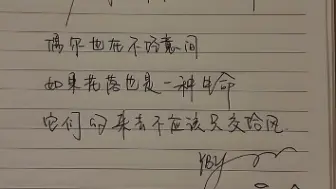 偶尔也在不经意间
如果花落也是一种生命
它们的来去不应该只交给风
YBY